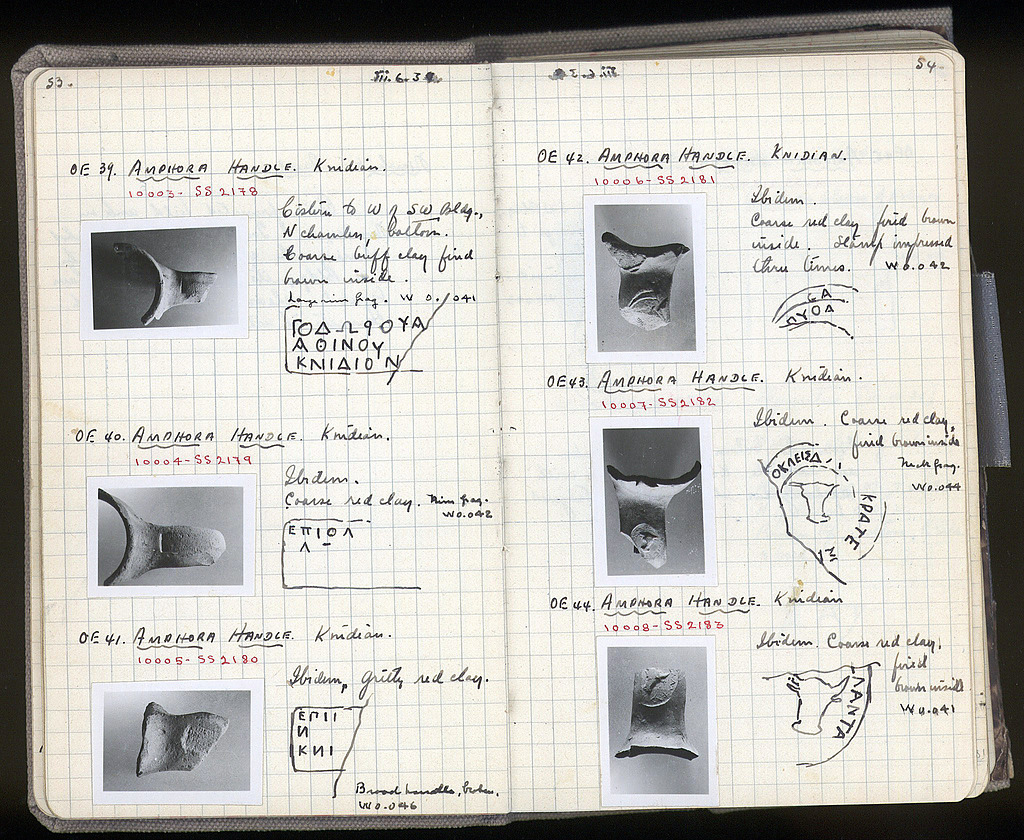 53.
OE 39. AMPHORA HANDLE. Knidian.
10003 - SS 2178
Cistern to W of SW Bldg.,
N chamber, bottom.
Coarse buff clay fired
brown inside.
Large rim frag. W 0.041
ΑΘΙΝΟΥ
ΚΝΙΔΙΟΝ
OE 40. AMPHORA HANDLE. Knidian.
10004 - SS 2179
Ibidem.
Coarse red clay. Rim frag.
W 0.042
ΕΠΙΟΛ
Λ
OE 41. AMPHORA HANDLE. Knidian.
10005 - SS 2180
Ibidem, gritty red clay.
ΕΠΙΙ
И
ΚΝΙ
Broad handle, broken.
W 0.046
54.
OE 42. AMPHORA HANDLE. KNIDIAN.
10006 - SS 2181
Ibidem.
Coarse red clay fired brown
inside. Stamp impressed
three times. W 0.042
CA
ΠΥΟΔ
OE 43. AMPHORA HANDLE. Knidian.
10007 - SS 2182
Ibidem. Coarse red clay,
fired brown inside
Neck frag.
W 0.044
ΟΚΛΕΙΣΔ
ΚΡΑΤΕ
ΜΑ
OE 44. AMPHORA HANDLE. Knidian
10008 - SS 2183
Ibidem. Coarse red clay,
fired
brown inside
W 0.041
ΛΑΝΤΑ